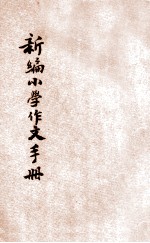 新编小學作文手册